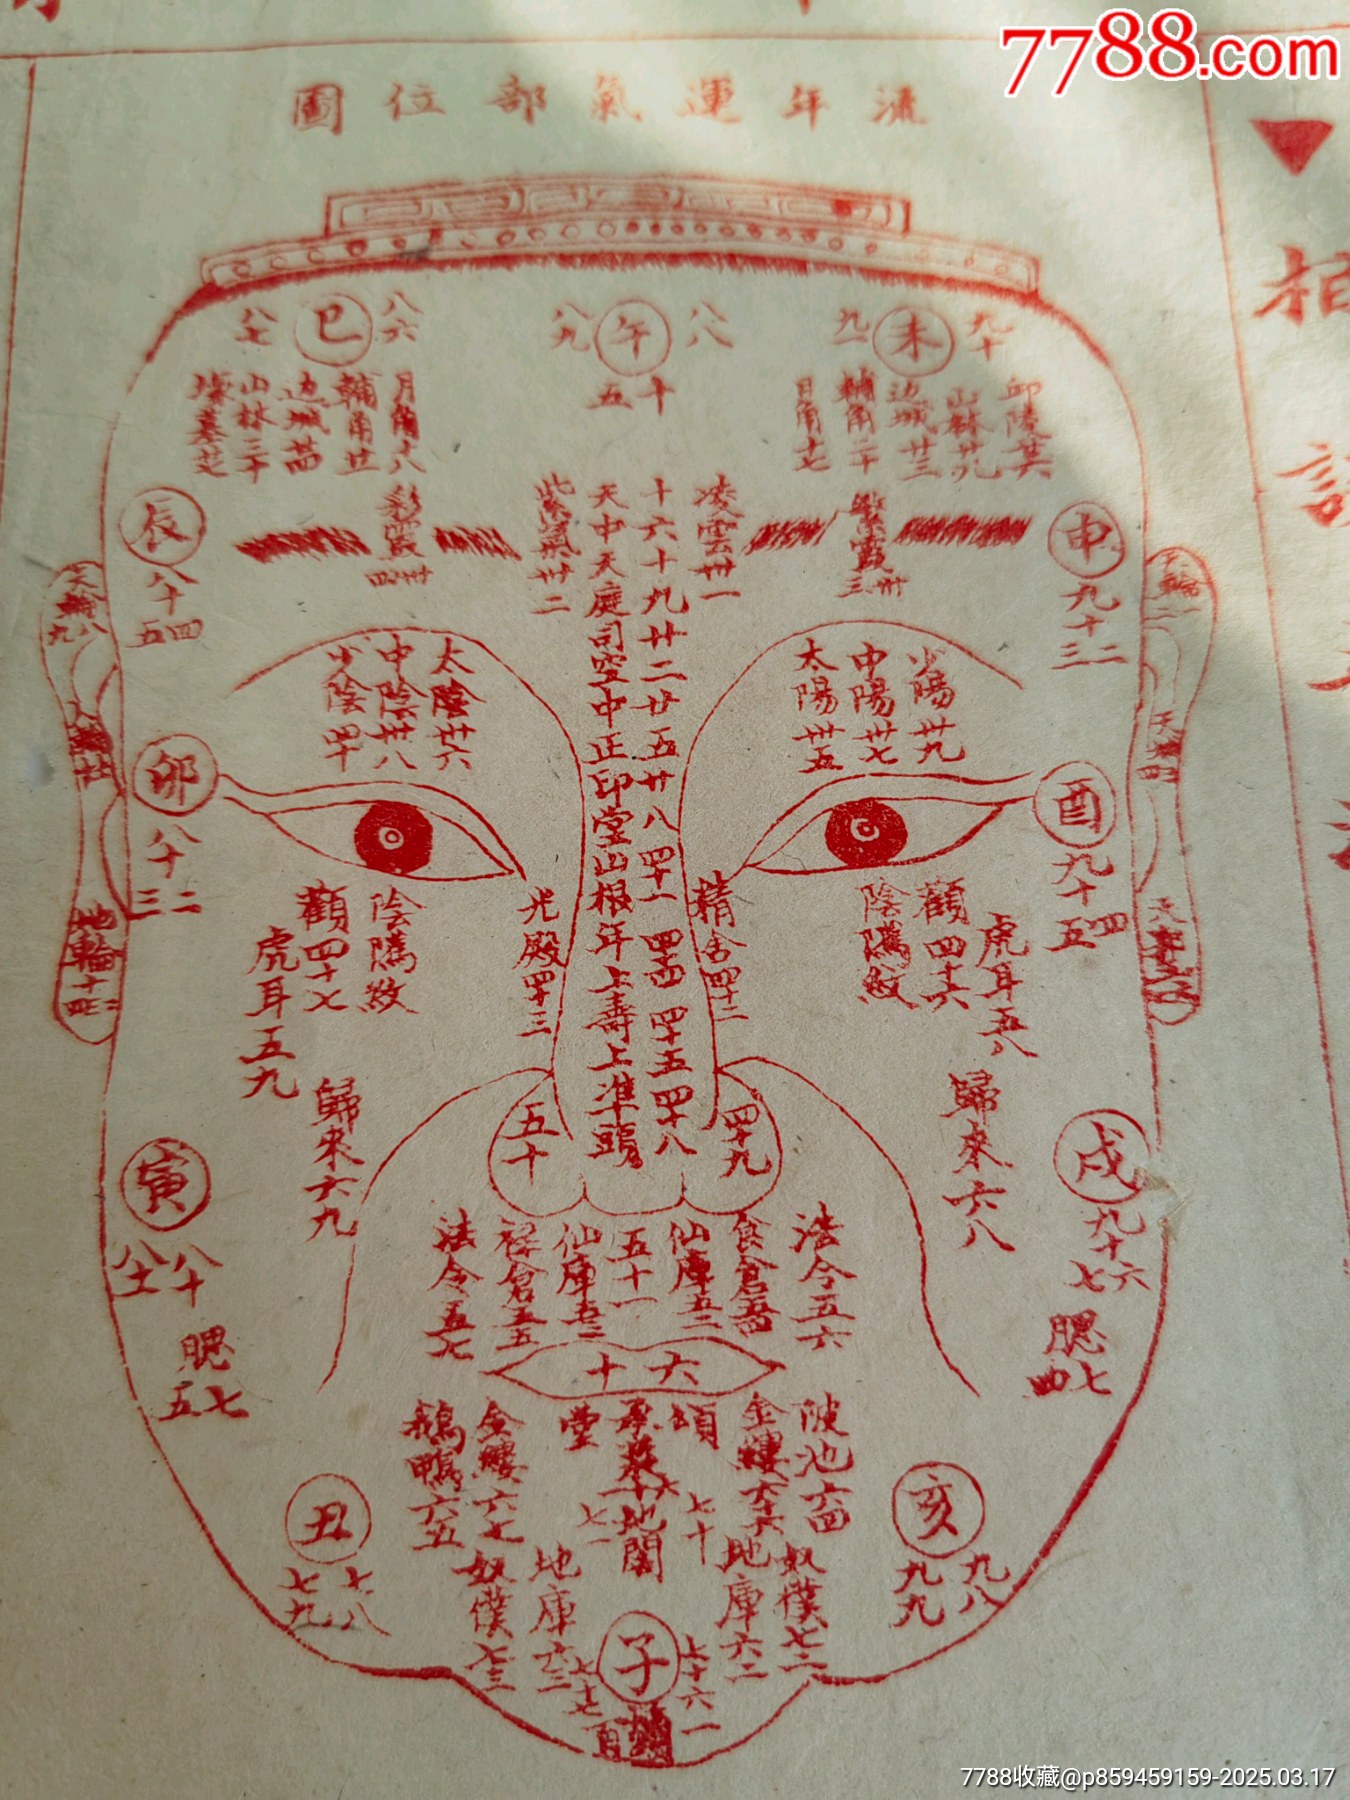 7788.com
流年運氣部位圖
相
巳
八六
八七
午
八八
八九
未
九十
九一
十五
月角十八
輔角廿一
边城廿四
山林三十
日角十七
輔角二十
边城廿三
山林廿九
邱陵廿六
辰
八十四五
彩霞卅四
紫氣卅二
凌雲卅一
繁霞卅三
申
九十二三
十六十九廿二廿五廿八四十一四十四四十五四十八
天中天庭司空中正印堂山根年上壽上準頭
太陰卅六
中陰卅八
少陰四十
太陽卅五
中陽卅七
少陽卅九
卯
八十二三
酉
九十四五
地輪十四
光殿四十三
精舍四十二
陰隲紋
顴四十七
虎耳五九
陰隲紋
顴四十六
虎耳五八
歸來六九
歸來六八
五十
四十九
寅
八十
八十一
戌
九十六七
法令五七
祿倉五五
仙庫五三
五十一
仙庫五二
食倉五四
法令五六
腮七五
腮七四
六十
鵝鴨六五
金縷六七
承漿六一
頌堂
七十
七一
地閣
金縷六六
陂池六四
丑
七八
七九
亥
九八
九九
奴僕七三
地庫六三
地庫六二
奴僕七二
子
七十六一
七十七
7788收藏@p859459159-2025.03.17